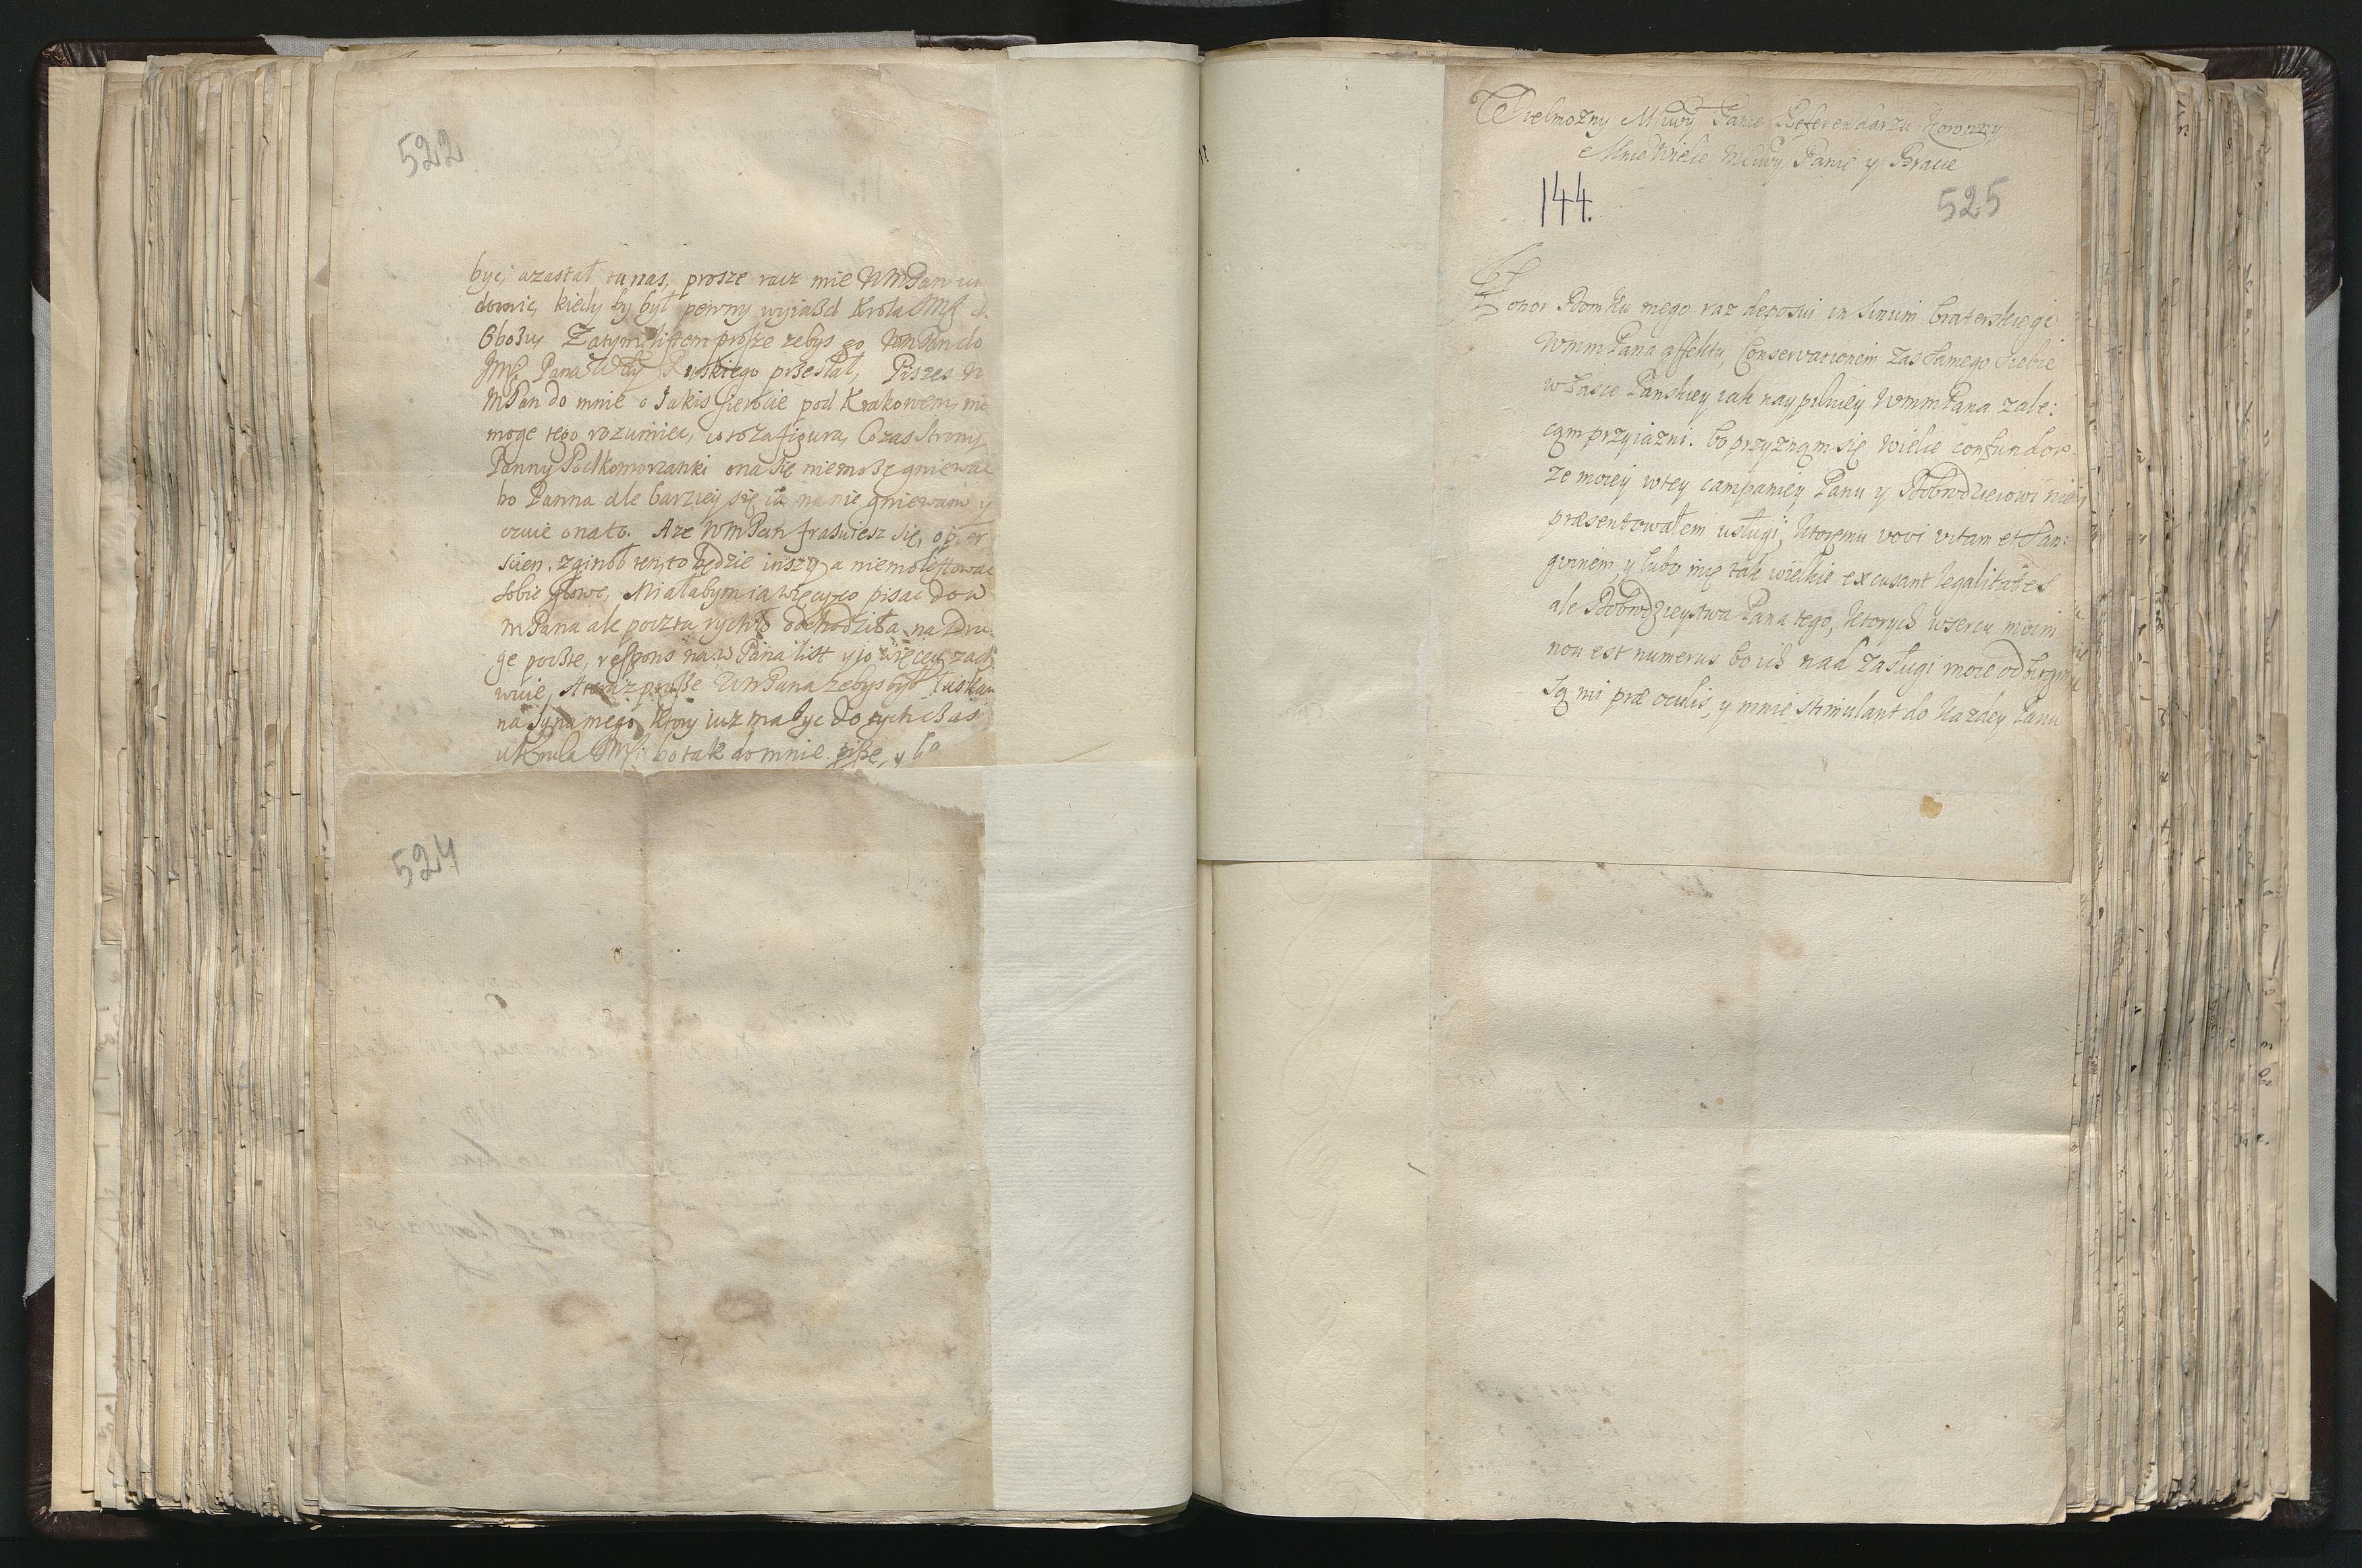 522
byc, azastał tu nas, prosze racz mie WMPan
domic, kiedy by był pewny wyiazd Krola JMſ
Obozu Zatym listem prosze zebys go WMPan do
JMſ Pana Ruskiego przesłał, Piszes W
MPan do mnie o Jakis sierocie pod Krakowem, nie
moge tego rozumiec, co to za figura, Co zas strony
Panny Podkomorzanki ona się niemoze gniewac
bo Panna ale barziey się ia na nie gniewam y
onato. Aze WMPan frasuiesz się, o pier
scien. zginoł ten, to będzie inszy, a niemolestowac
sobie głowe, Miałabym ia więcy co pisac do W
MPana ale poczta rychło odchodziła, na dru
ge poczte, respons na W Pana list y io więcey zach
wuie, A teraz prosze WMPana zebys był łaskaw
na syna mego, ktory iuz ma byc do tych czas
u Krola JMſ: bo tak do mnie pisze, y
524
Wielmozny Mſciwy Panie Referendarzu Koronny
Mnie Wielce Mſciwy Panie y Bracie
144.
525
Honor Domku mego raz deposui in sinum braterskiego
WMMPana affektu, Conservationem zas samego siebie
w łasce Panskiey iak naypilniey WMMPana zale:
cam przyiazni: bo przyznam się wielce confundor
ze moiey w tey campaniey Panu y Dobrodzieiowi
præsentowałem usługi, ktoremu vovi vitam et san:
gvinem, y lubo mię tak wielkie excusant legalitates
ale Dobrodzieystwa Pana tego, ktorych w sercu moim
non est numerus bo ich nad zasługi moie odbieram
są mi præ oculis, y mnie stimulant do kazdey Panu